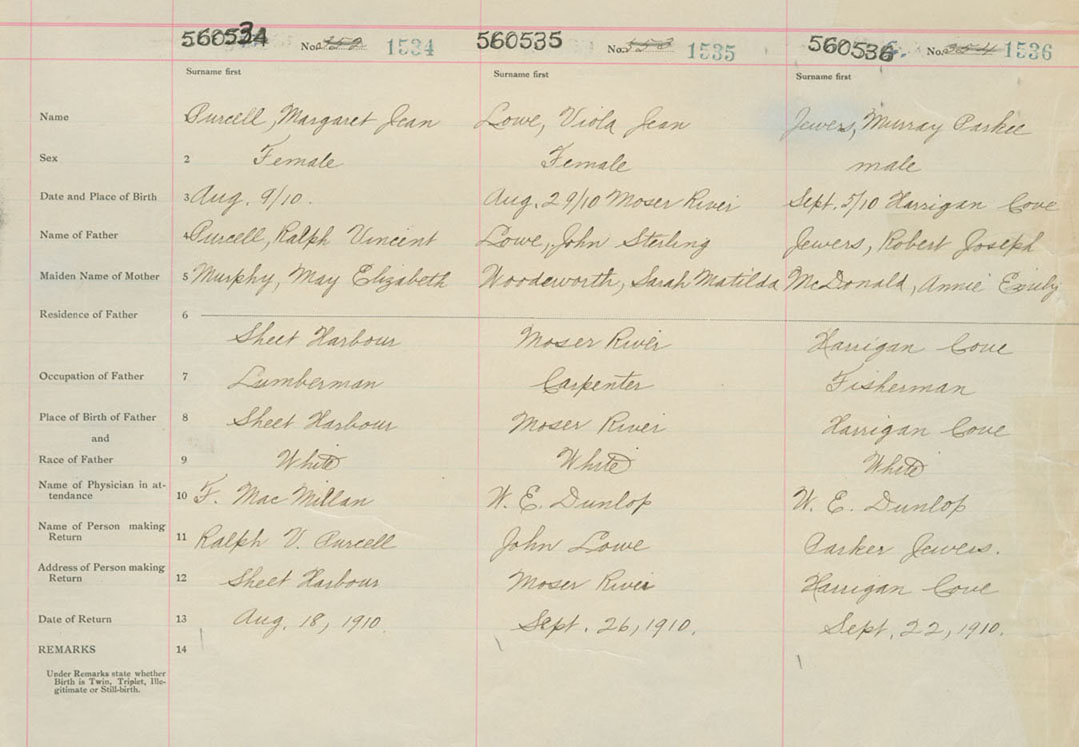 560534 No. 350 1534 560535 No. 353 1535 560536 No. 354 1536
Surname first Surname first Surname first
Name 1 Purcell, Margaret Jean Lowe, Viola Jean Jewers, Murray Parker
Sex 2 Female Female male
Date and Place of Birth 3 Aug. 9/10. Aug. 29/10 Moser River Sept. 5/10 Harrigan Cove
Name of Father 4 Purcell, Ralph Vincent Lowe, John Sterling Jewers, Robert Joseph
Maiden Name of Mother 5 Murphy, May Elizabeth Woodeworth, Sarah Matilda McDonald, Annie Emily
Residence of Father 6
Sheet Harbour Moser River Harrigan Cove
Occupation of Father 7 Lumberman Carpenter Fisherman
Place of Birth of Father 8 Sheet Harbour Moser River Harrigan Cove
and
Race of Father 9 White White White
Name of Physician in at-
tendance 10 F. MacMillan W. E. Dunlop W. E. Dunlop
Name of Person making
Return 11 Ralph V. Purcell John Lowe Parker Jewers.
Address of Person making
Return 12 Sheet Harbour Moser River Harrigan Cove
Date of Return 13 Aug. 18, 1910. Sept. 26, 1910. Sept. 22, 1910.
REMARKS 14
Under Remarks state whether
Birth is Twin, Triplet, Ille-
gitimate or Still-birth.